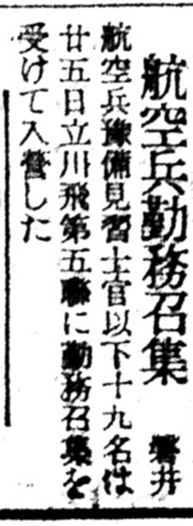 航空兵勤務召集
磐井
航空兵豫備見習士官以下十九名は
廿五日立川飛第五聯に勤務召集を
受けて入營した